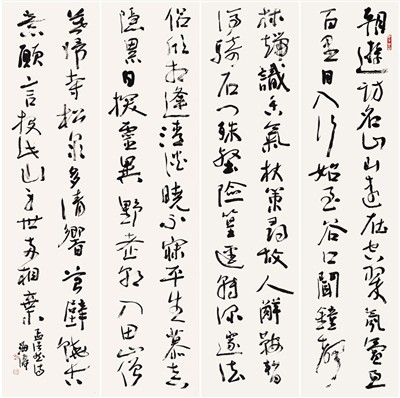 朝遊訪名山山遠在空翠氛氲亘
百里日入行始至谷口聞鐘聲
林端識香氣杖策尋故人解鞍暫
停騎石門殊壑險篁逕轉深邃法
侣欣相逢清談曉不寐平生慕真
隱累日探靈異野老朝入田山僧
暮歸寺松泉多清響苔壁饒古
意願言投此山身世两相棄 孟浩然詩